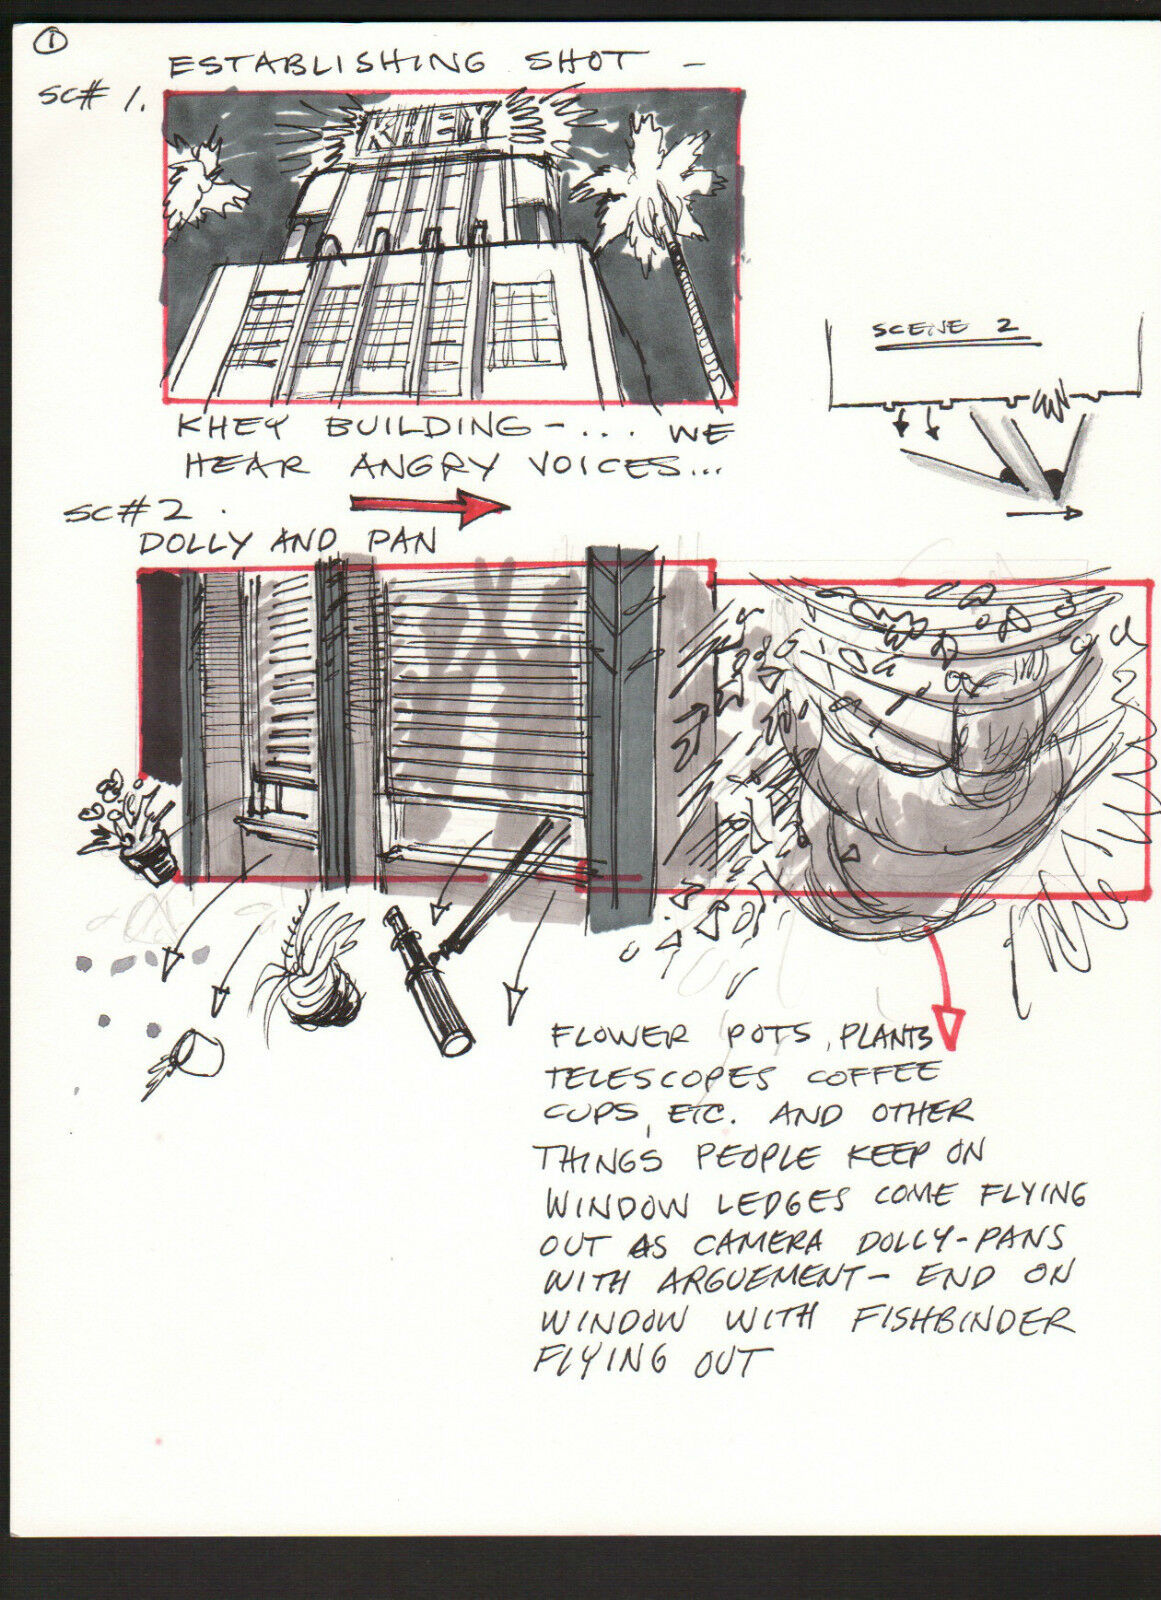 1
ESTABLISHING SHOT -
SC# 1.
KHEY
KHEY BUILDING - ... WE
HEAR ANGRY VOICES...
SCENE 2
SC# 2.
DOLLY AND PAN
FLOWER POTS, PLANTS
TELESCOPES COFFEE
CUPS, ETC. AND OTHER
THINGS PEOPLE KEEP ON
WINDOW LEDGES COME FLYING
OUT AS CAMERA DOLLY-PANS
WITH ARGUEMENT - END ON
WINDOW WITH FISHBINDER
FLYING OUT